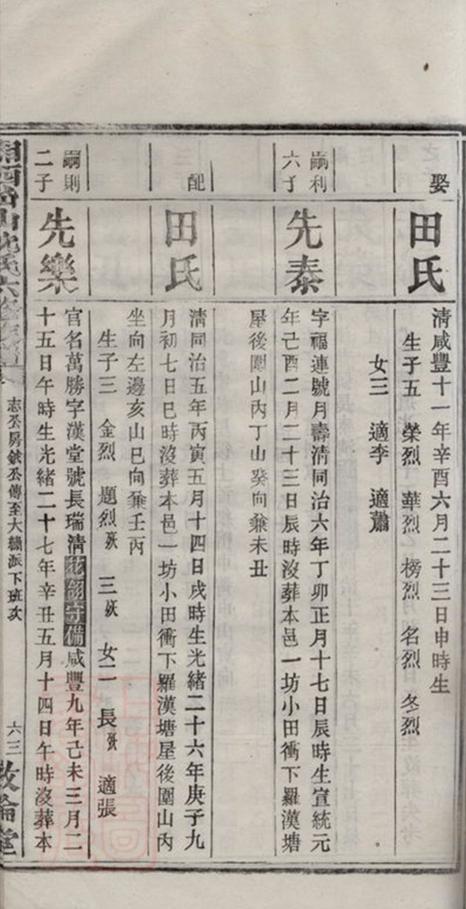 娶
田氏
清咸豐十一年辛酉六月二十三日申時生
生子五 榮烈 華烈 榜烈 名烈 冬烈
女三 適李 適蕭
嗣利
六子
先泰
字福連號月壽清同治六年丁卯正月十七日辰時生宣統元
年己酉二月二十三日辰時沒葬本邑一坊小田衝下羅漢塘
屋後圍山內丁山癸向兼未丑
配
田氏
清同治五年丙寅五月十四日戌時生光緒二十六年庚子九
月初七日巳時沒葬本邑一坊小田衝下羅漢塘屋後圍山內
坐向左邊亥山巳向兼壬丙
生子三 金烈 題烈殀 三殀 女二 長殀 適張
嗣則
二子
先樂
官名萬勝字漢堂號長瑞清花翎守備咸豐九年己未三月二
十五日午時生光緒二十七年辛丑五月十四日午時沒葬本
氏六修
志丕房 公傳至大 派下班次
六三
敦倫堂